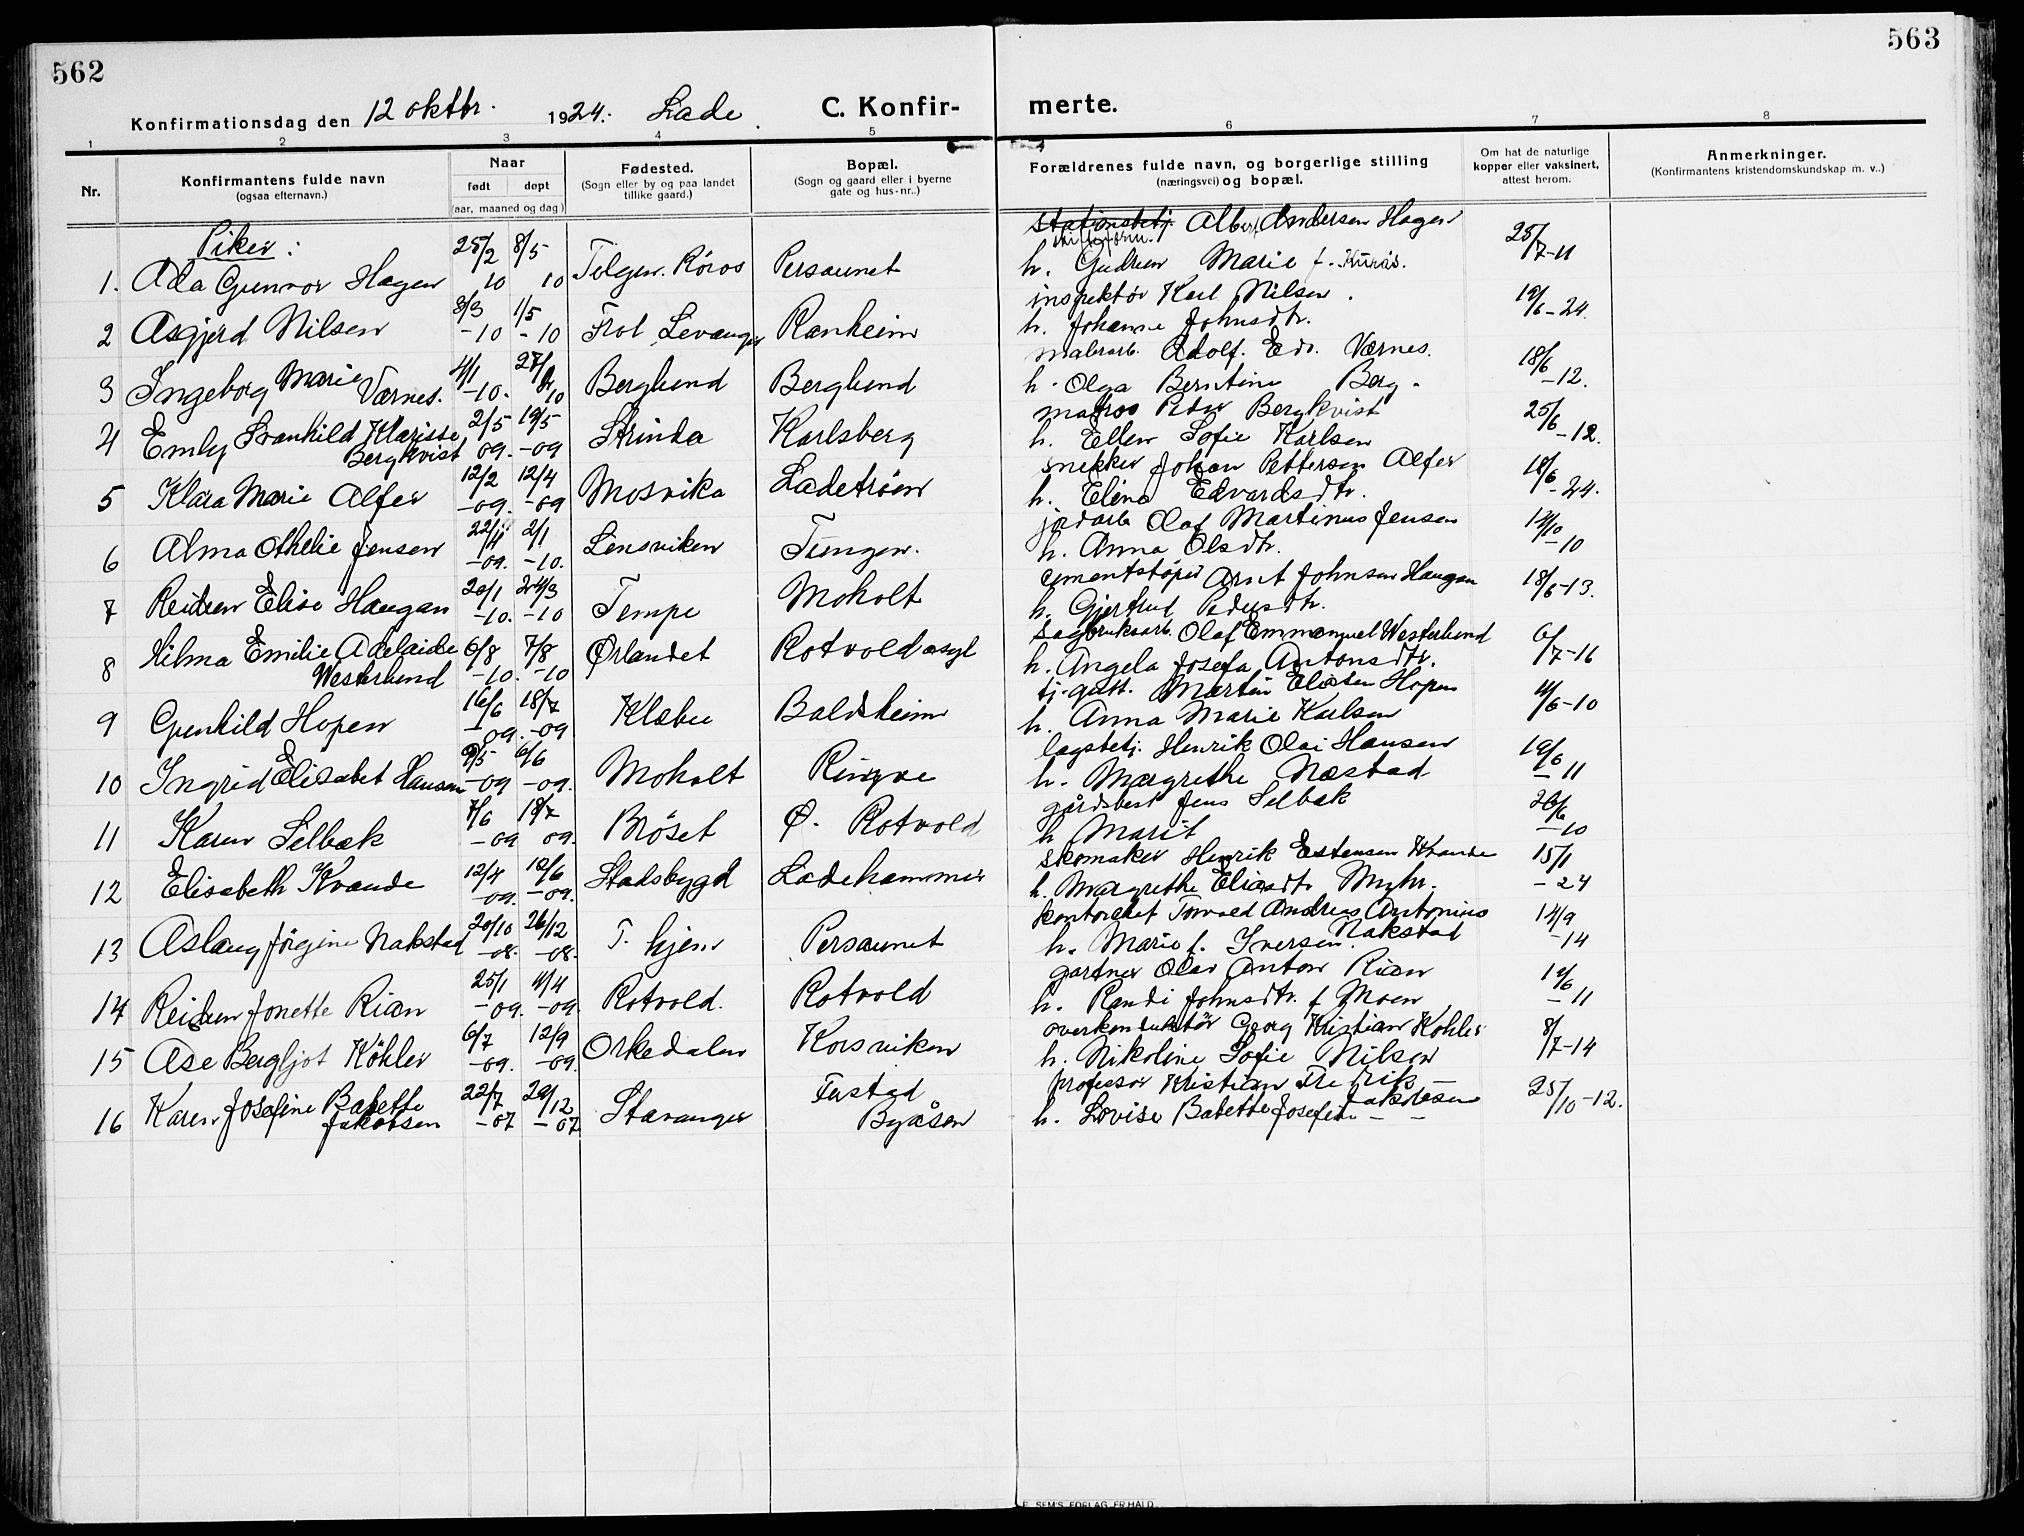 562
563
Konfirmationsdag den 12 oktbr. 1924. Lade. C. Konfir- merte.
1 2 3 4 5 6 7 8
Nr.
Konfirmantens fulde navn
(ogsaa efternavn.)
Naar
født døpt
(aar, maaned og dag)
Fødested.
(Sogn eller by og paa landet
tillike gaard.)
Bopæl.
(Sogn og gaard eller i byerne
gate og hus-nr..)
Forældrenes fulde navn, og borgerlige stilling
(næringsvei) og bopæl.
Om hat de naturlige
kopper eller vaksinert,
attest herom.
Anmerkninger.
(Konfirmantens kristendomskundskap m. v..)
Piker:
stationsbetj. Albert Andersen Hagen
skifteform.
1. Ada Gunvor Hagen 25/2 10 8/5 10 Tilgen. Röros Persaunet h. Gudrun Marie f. Kurås. 25/7-11
inspektör Karl Nilsen.
2 Asgjerd Nilsen 8/3 -10 1/5 -10 Frol Levanger Ranheim h. Johanne Johnsdtr. 19/6-24.
malerarb. Adolf. Edv. Værnes.
3 Ingeborg Marie Værnes. 4/1 -10. 27/ 10 Berglund Berglund h. Olga Berntine Berg. 18/6-12.
matros Peder Bergkvist
4 Emly Svanhild Klarisse
Bergkvist 2/5 09. 19/5 -09 Strinda Karlsberg h. Ellen Sofie Karlsen 25/6-12.
snekker Johan Pettersen Alfer
5 Klara Marie Alfer 12/2 -09. 12/4 -09 Mosvika Ladetröen h. Eline Edvardsdtr. 18/6-24.
jordarb Olaf Martinus Jensen
6 Alma Othelie Jensen 22/11 -09. 2/1 -10. Lensviken Tungen. h. Anna Olsdtr. 14/10-10
cementstöper Arnt Johnsen Haugan
7 Reidun Elise Haugan 20/1 -10. 24/3 -10 Tempe Moholt h. Gjertrud Pedersdtr. 18/6-13.
Sagbruksarb. Olaf Emmanuel Westerlund
8 Hilma Emilie Adelaide
Westerlund 6/8 -10. 7/8 -10 Ørlandet Rotvold asyl h. Angela Josefa Antonsdtr. 6/7-16
tj.gutt. Martin Eliasen Hopen
9 Gunhild Hopen 16/6 -09. 18/7 -09 Klæbu Baldsheim h. Anna Marie Karlsen 4/6-10
lagsbetj. Henrik Olai Hansen
10 Ingrid Elisabet Hansen 9/5 -09 6/6 -09. Moholt Ringve h. Margrethe Næstad 19/6-11
gårdsbest Jens Selbak
11 Karen Selbæk 7/6 -09 18/7 09. Bröset Ø. Rotvold h Marit 26/6-10
skomaker Henrik Estensen Kvande
12 Elisabeth Kvande 12/4 -09. 12/6 -09. Stadsbygd Ladehammer h. Margrethe Eliasdtr Myhr. 15/1-24
kontorchef Torvald Andreas Antonius
Nakstad
13 Aslaug Jörgine Nakstad 20/10 -08. 26/12 -08. T. hjem Persaunet h. Marie f. Iversen. 14/9-14
gartner Olav Anton Rian
14 Reidun Jonette Rian 25/1 -09. 4/4 -09. Rotvold. Rotvold h. Randi Johnsdtr. f Moen 14/6-11
overkonduktör Georg Kristian Köhler
15 Ase Bergljot Köhler 6/7 -09. 12/9 -09. Orkedalen Korsviken h. Nikoline Sofie Nilsen 8/7-14
professor Kristian Fredrik
Jakobsen
16 Karen Josefine Babette
Jakobsen 22/7 -07 29/12 -07 Stavanger Fustad
Byåsen h. Lovise Babette Josefine - - 25/10-12.
E. SEM'S FORLAG, FR.HALD.